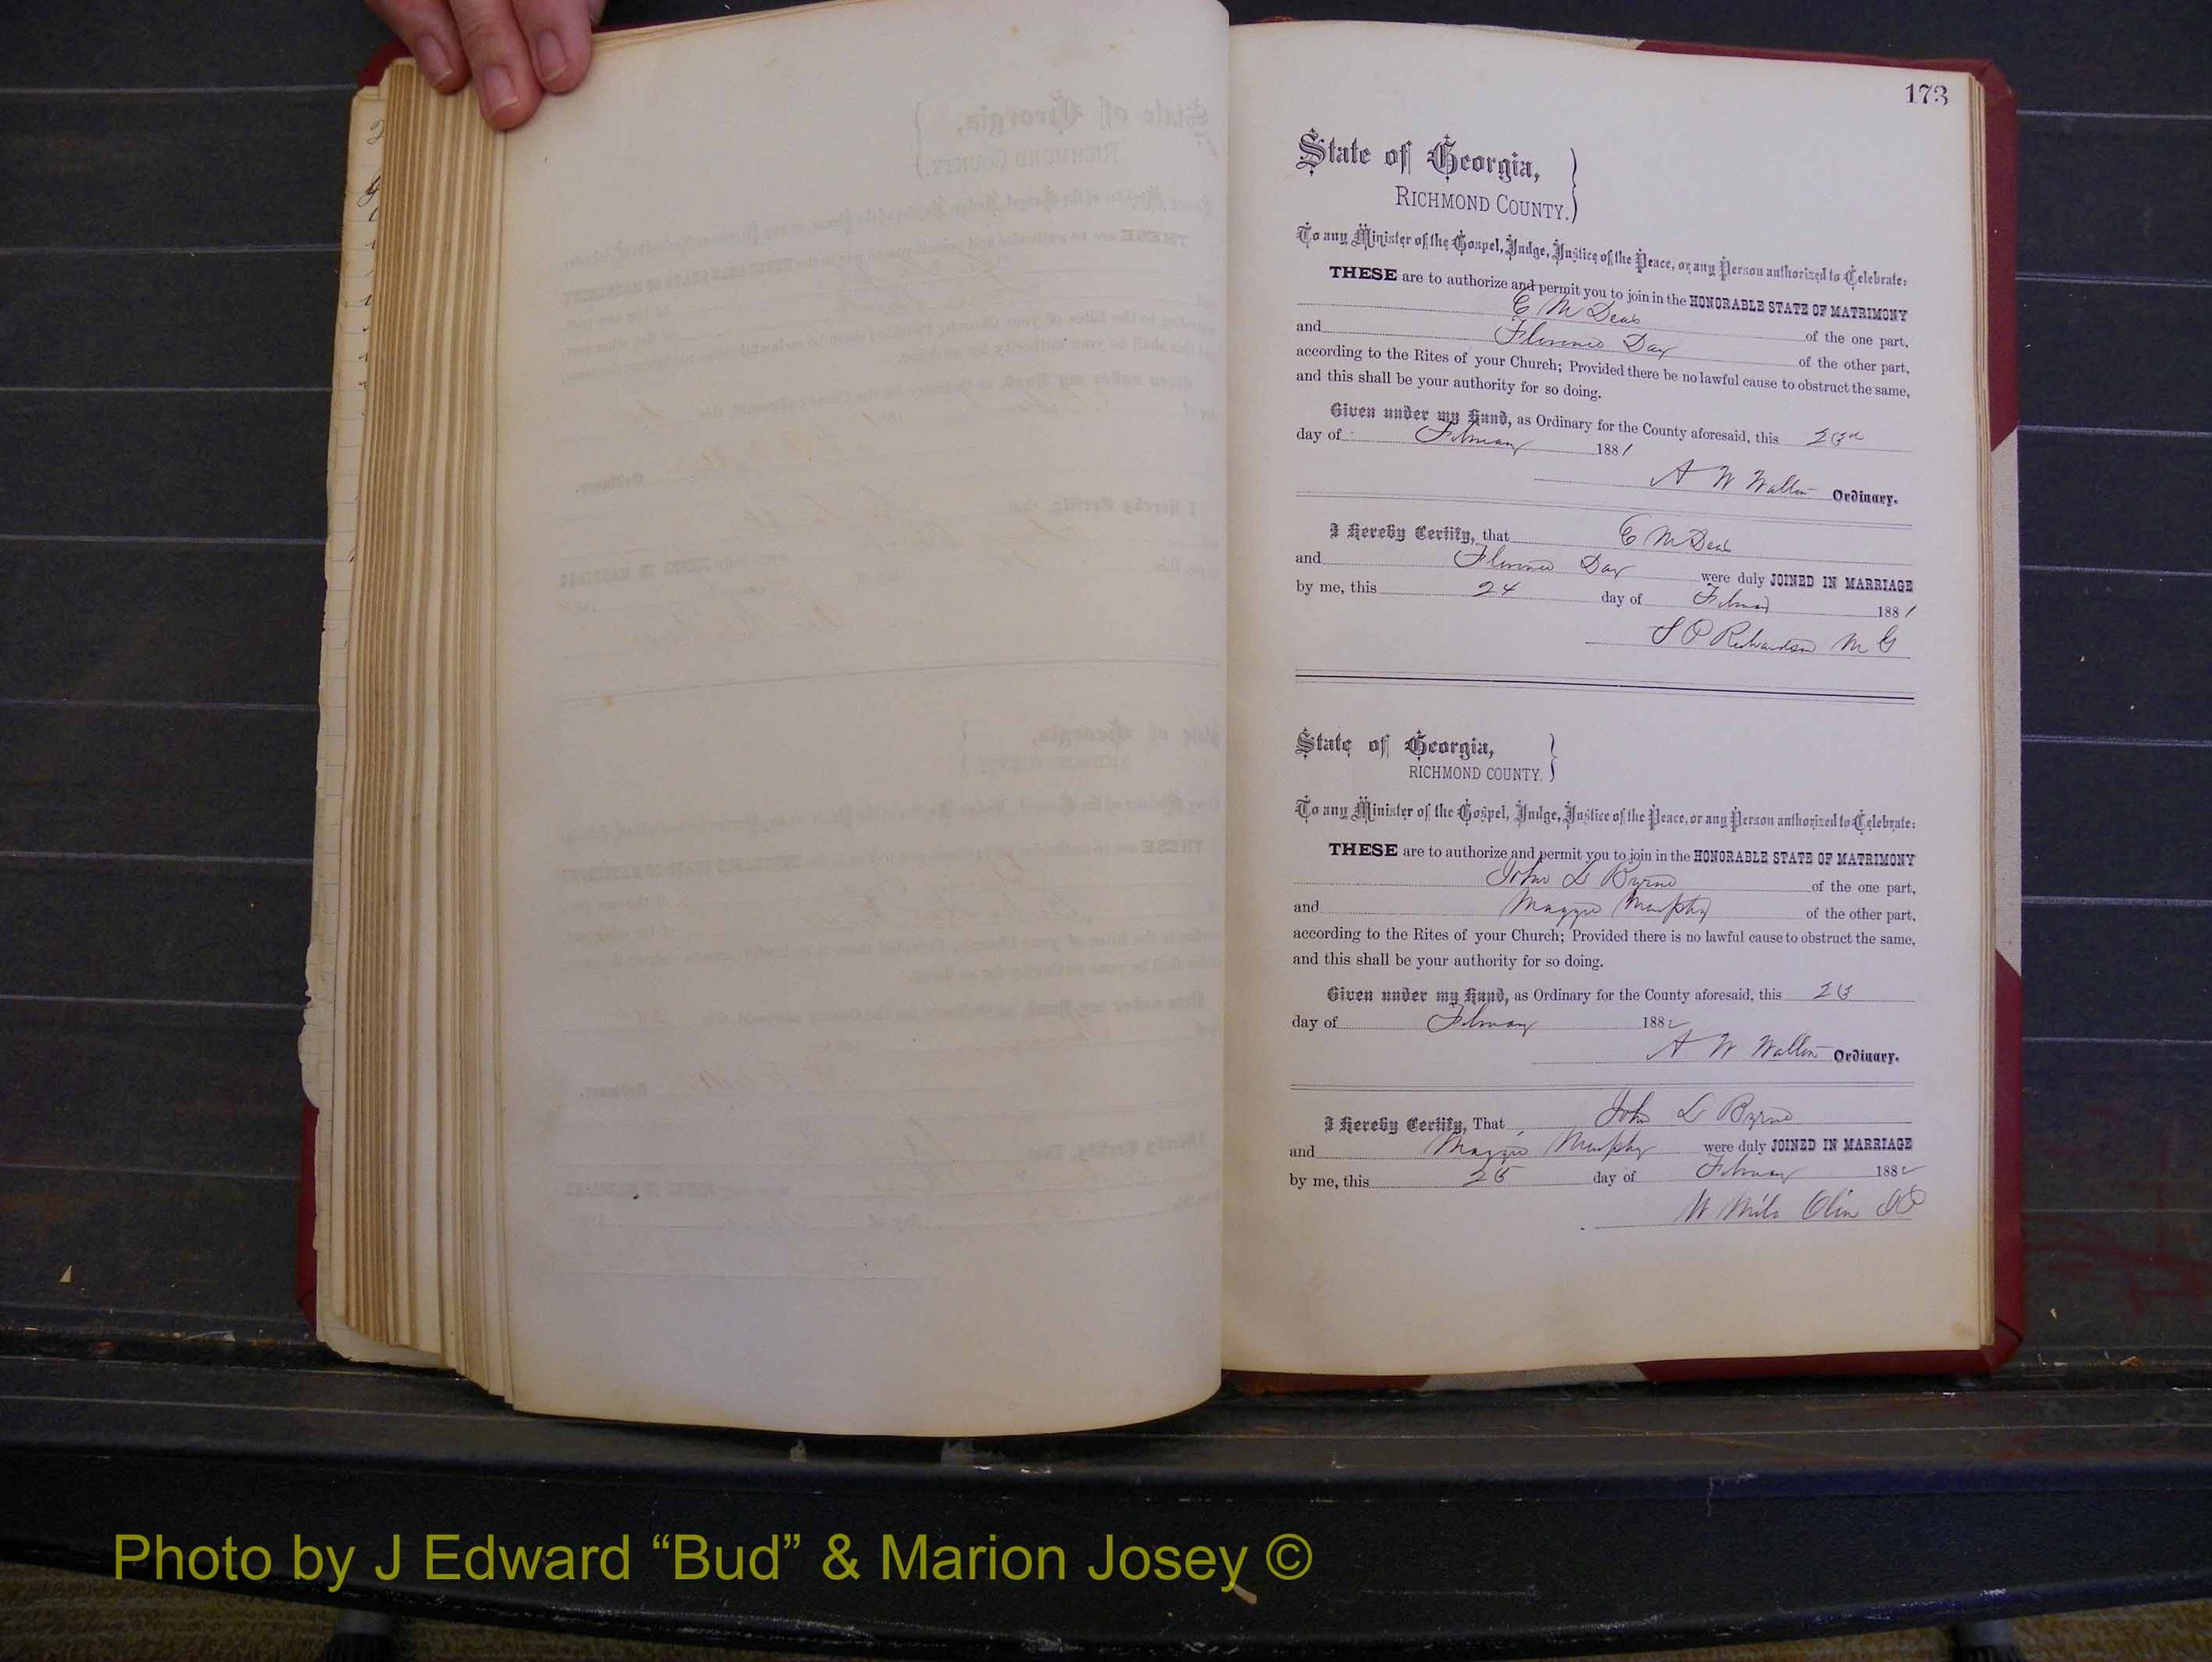 173
State of Georgia,
RICHMOND COUNTY.
To any Minister of the Gospel, Judge, Justice of the Peace, or any Person authorized to Celebrate:
THESE are to authorize and permit you to join in the HONORABLE STATE OF MATRIMONY
C M Deas of the one part,
and Florence Day of the other part,
according to the Rites of your Church; Provided there be no lawful cause to obstruct the same,
and this shall be your authority for so doing.
Given under my Hand, as Ordinary for the County aforesaid, this 23rd
day of February 1881
A W Walton Ordinary.
I Hereby Certify, that C M Deas
and Florence Day were duly JOINED IN MARRIAGE
by me, this 24 day of 1881
S P Richardson M G
State of Georgia,
RICHMOND COUNTY.
To any Minister of the Gospel, Judge, Justice of the Peace, or any Person authorized to Celebrate:
THESE are to authorize and permit you to join in the HONORABLE STATE OF MATRIMONY
John L Byrne of the one part,
and Maggie Murphy of the other part,
according to the Rites of your Church; Provided there is no lawful cause to obstruct the same,
and this shall be your authority for so doing.
Given under my Hand, as Ordinary for the County aforesaid, this
day of February 1882
A W Walton Ordinary.
I Hereby Certify, That John L Byrne
and Maggie Murphy were duly JOINED IN MARRIAGE
by me, this day of February 1882
W Olin
Photo by J Edward “Bud” & Marion Josey ©